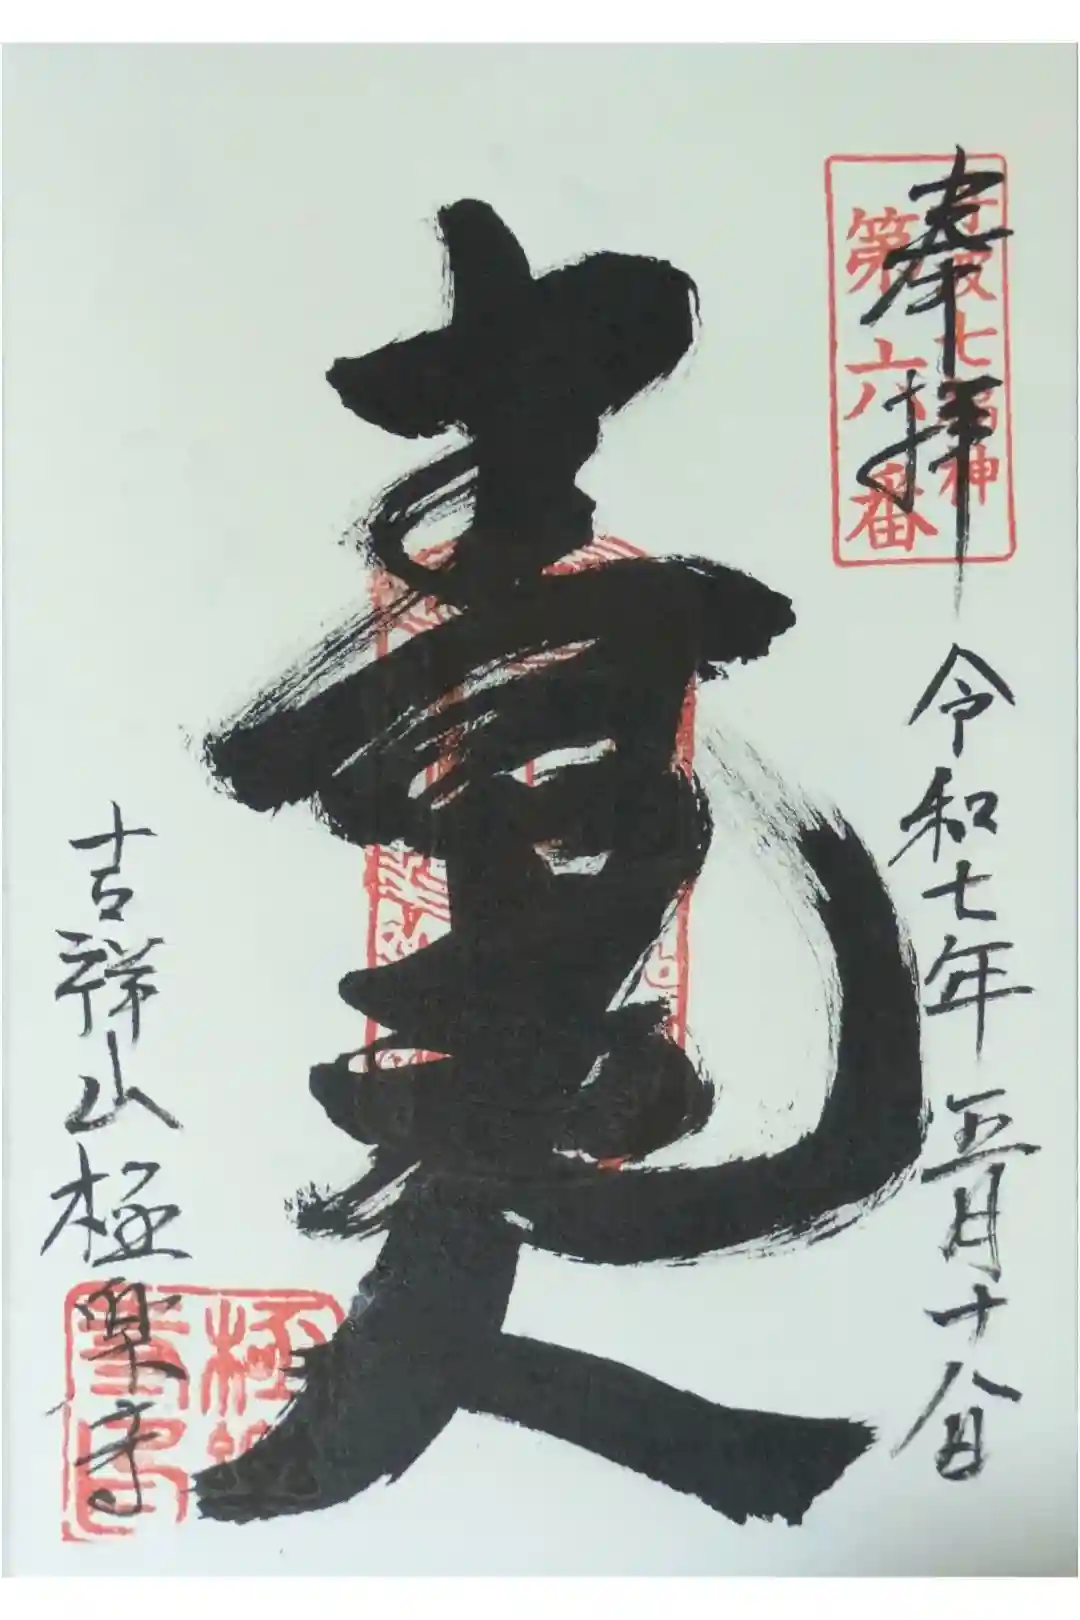 奉拝
七福神
第六番
令和七年五月十八日
寿老人
吉祥山極楽寺